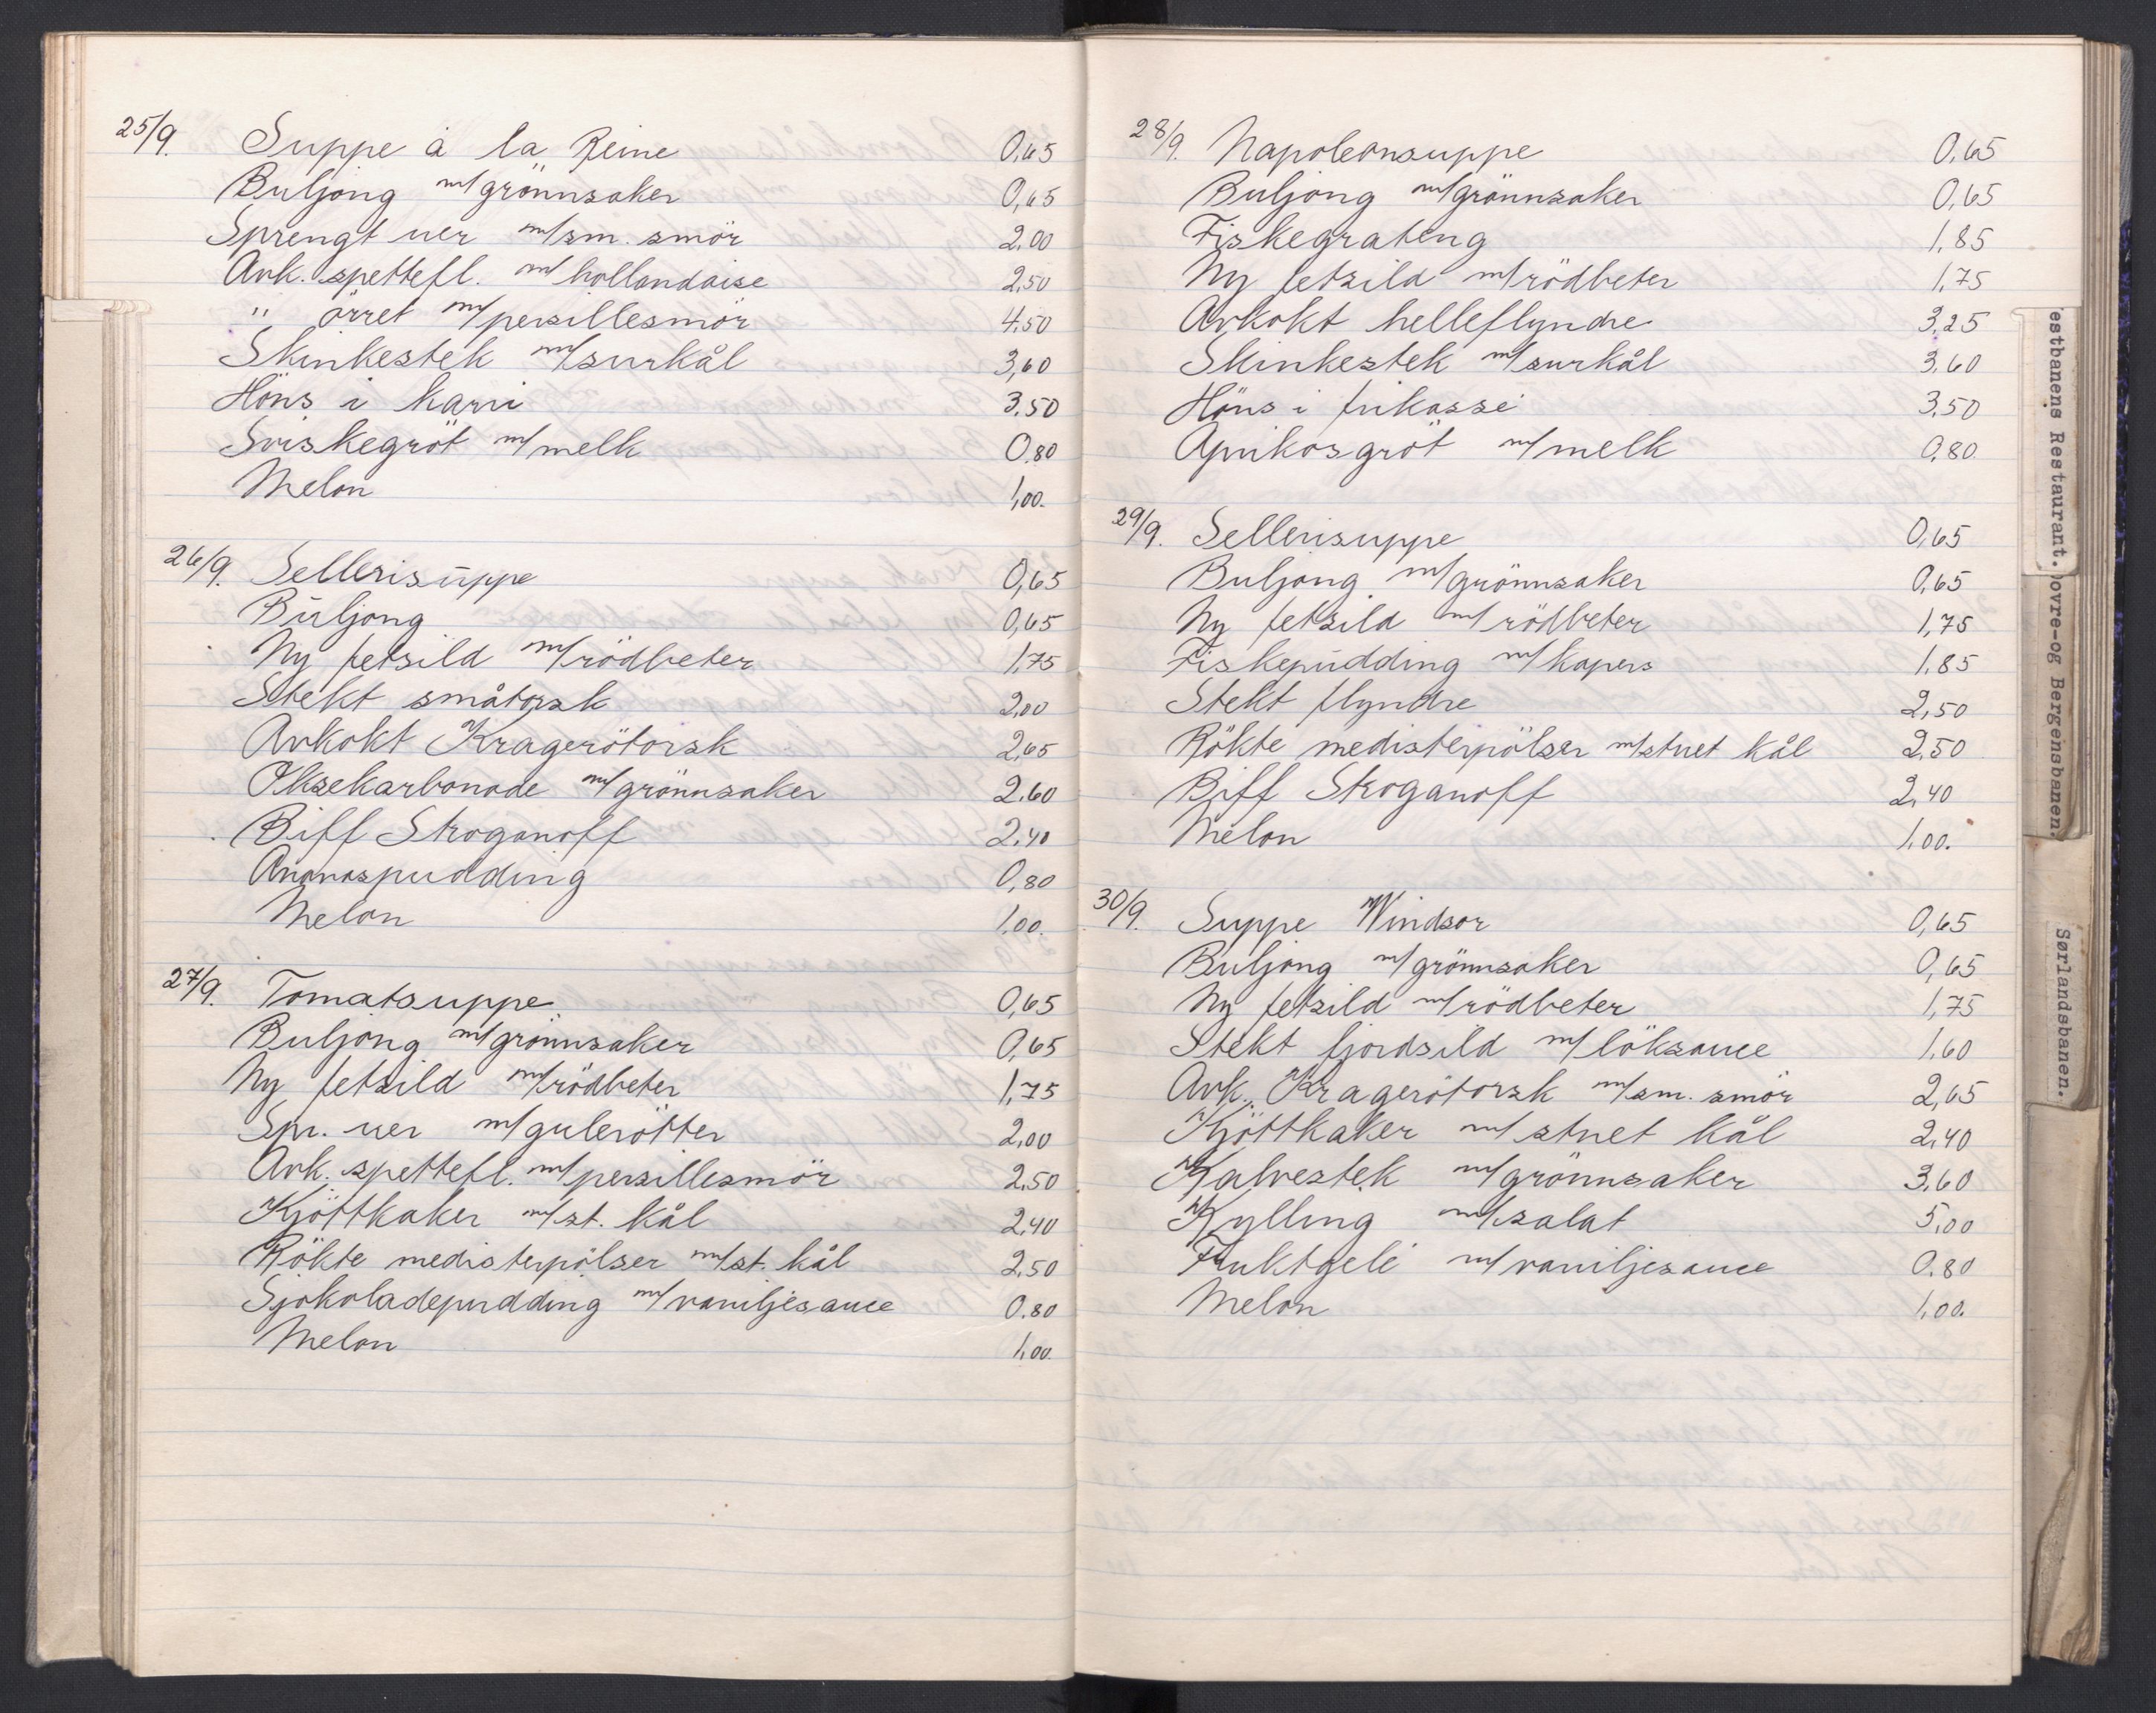 25/9. Suppe à la Reine 0,65
Buljong m/grönnsaker 0,65
Sprengt uer m/sm. smör 2,00
Avk. spettefl. m/hollandaise 2,50
" örret m/persillesmör 4,50
Skinkestek m/surkål 3,60
Höns i karri 3,50
Sviskegröt m/melk 0,80
Melon 1,00.
26/9. Sellerisuppe 0,65
Buljong 0,65
Ny fetsild m/rödbeter 1,75
Stekt småtorsk 2,00
Avkokt Kragerötorsk 2,65
Oksekarbonade m/grönnsaker 2,60
Biff Stroganoff 2,40
Ananaspudding 0,80
Melon 1,00.
27/9. Tomatsuppe 0,65
Buljong m/grönnsaker 0,65
Ny fetsild m/rödbeter 1,75
Spr. uer m/gulerötter 2,00
Avk. spettefl. m/persillesmör 2,50
Kjöttkaker m/st. kål 2,40
Rökte medisterpölser m/st. kål 2,50
Sjokoladepudding m/vaniljesauce 0,80
Melon 1,00.
28/9. Napoleonsuppe 0,65
Buljong m/grönnsaker 0,65
Fiskegrateng 1,85
Ny fetsild m/rödbeter 1,75
Avkokt helleflyndre 3,25
Skinkestek m/surkål 3,60
Höns i frikassé 3,50
Aprikosgröt m/melk 0,80.
29/9. Sellerisuppe 0,65
Buljong m/grönnsaker 0,65
Ny fetsild m/rödbeter 1,75
Fiskepudding m/kapers 1,85
Stekt flyndre 2,50
Rökte medisterpölser m/stuet kål 2,50
Biff Stroganoff 2,40
Melon 1,00.
30/9. Suppe Windsor 0,65
Buljong m/grönnsaker 0,65
Ny fetsild m/rödbeter 1,75
Stekt fjordsild m/löksauce 1,60
Avk. Kragerötorsk m/sm. smör 2,65
Kjöttkaker m/stuet kål 2,40
Kalvestek m/grönnsaker 3,60
Kylling m/salat 5,00
Fruktgelé m/vaniljesauce 0,80
Melon 1,00.
estbanens Restaurant.
ovre-og Bergensbanen.
Sørlandsbanen.